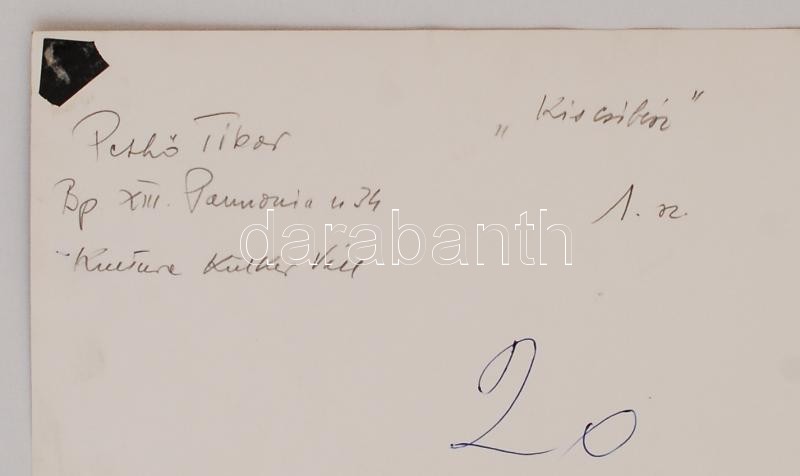 Pethő Tibor
„Kiscsibész”
Bp XIII. Pannonia u 34
1. sz.
Kultura Külker Váll
darabanth
20